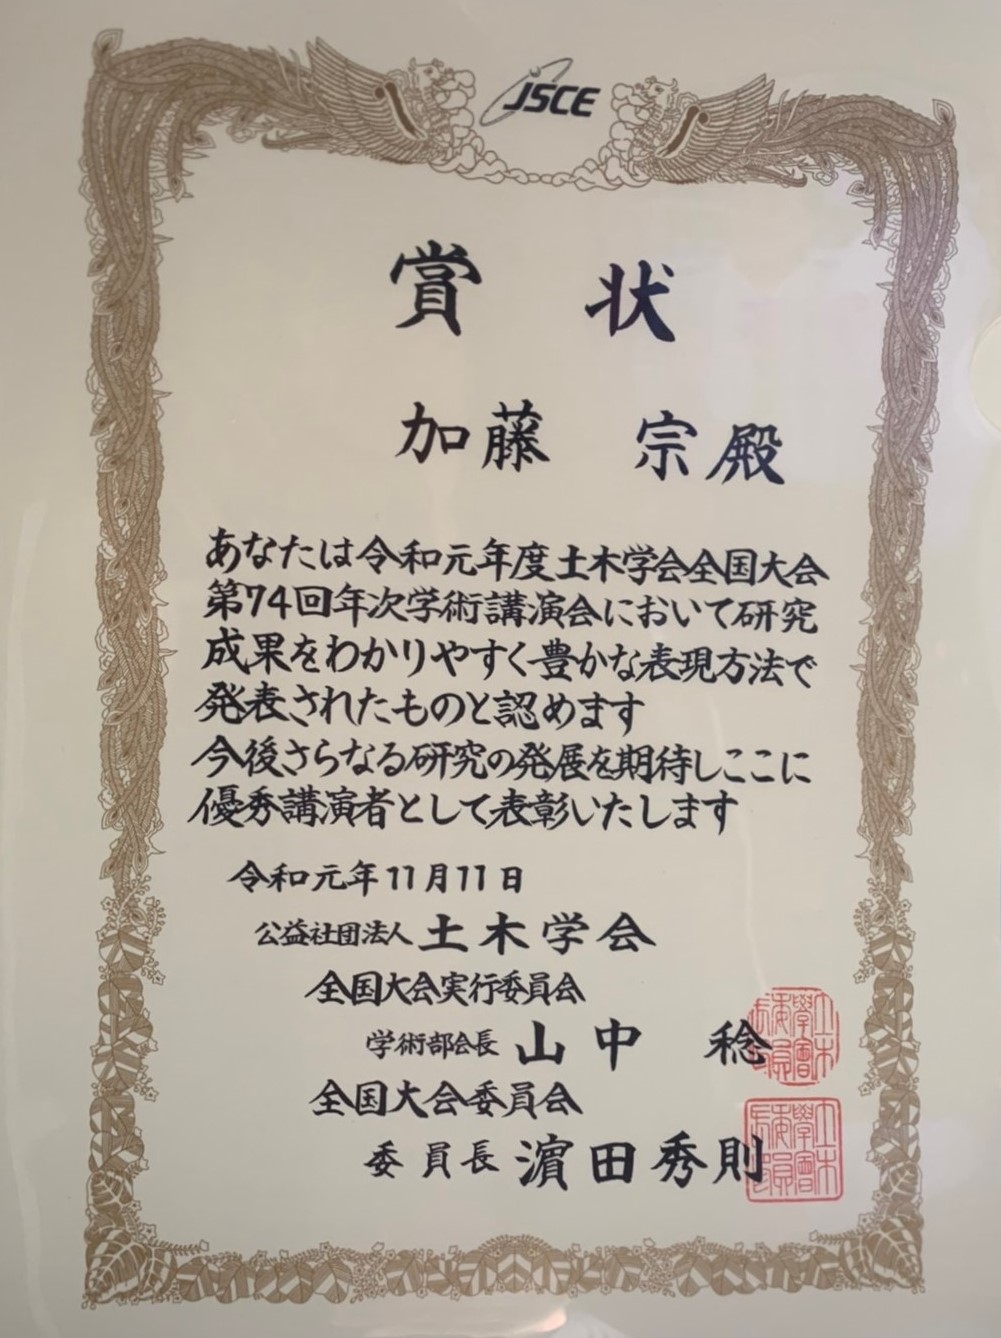 JSCE
賞 状
加藤 宗殿
あなたは令和元年度土木学会全国大会
第74回年次学術講演会において研究
成果をわかりやすく豊かな表現方法で
発表されたものと認めます
今後さらなる研究の発展を期待しここに
優秀講演者として表彰いたします
令和元年11月11日
公益社団法人 土木学会
全国大会実行委員会
学術部会長 山中 稔
全国大会委員会
委員長 濵田秀則